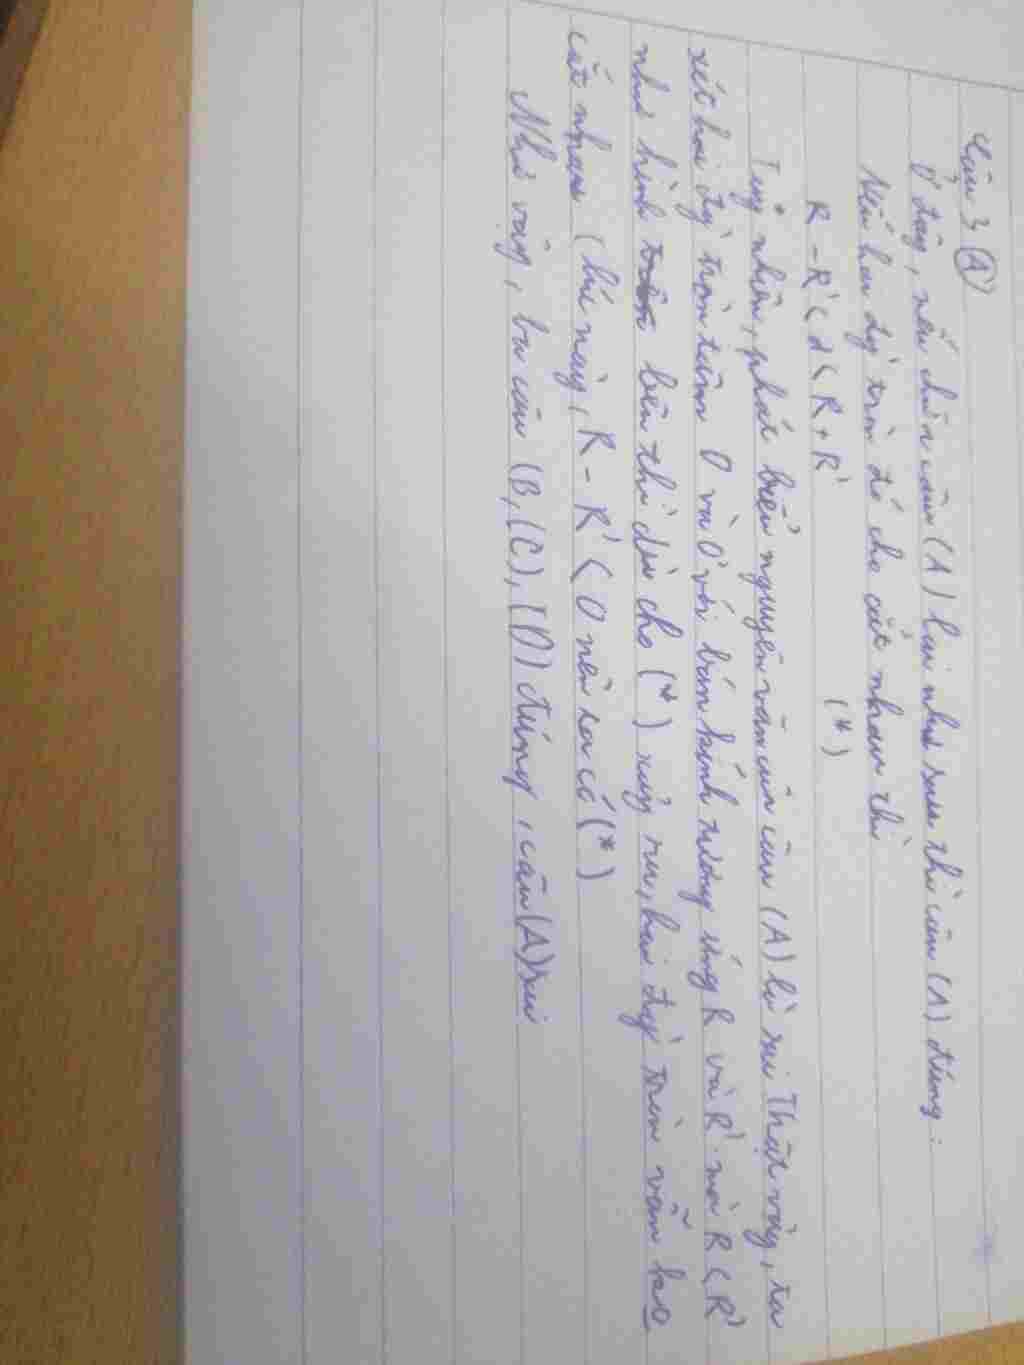 Câu 3 (A)
Ở đây, nếu chữa câu (A) lại như sau thì câu (A) đúng:
Nếu hai đg tròn đó cho cắt nhau thì
R - R' < d < R + R' (*)
Tuy nhiên, phát biểu nguyên văn của câu (A) là sai Thật vậy, ta
xét hai đg tròn tâm O và O' với bán kính tương ứng R và R' mà R < R'
như hình bên thì dù cho (*) xảy ra, hai đg tròn vẫn ko
cắt nhau (lúc này, R - R' < 0 nên ta có (*)
Như vậy, ba câu (B, (C), (D) đúng, câu (A) sai